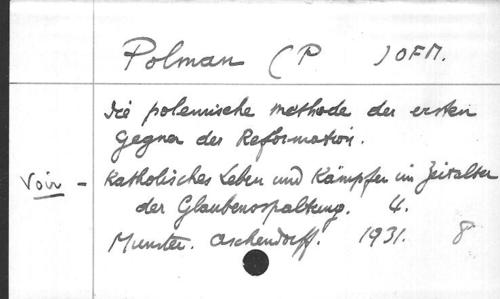 Polman (P ) OFM.
Die polemische methode der ersten
Gegner der Reformation.
Voir - Katholisches Leben und Kämpfen im Zeitalter
der Glaubensspaltung. 4.
Munster. Aschendorff. 1931. 8